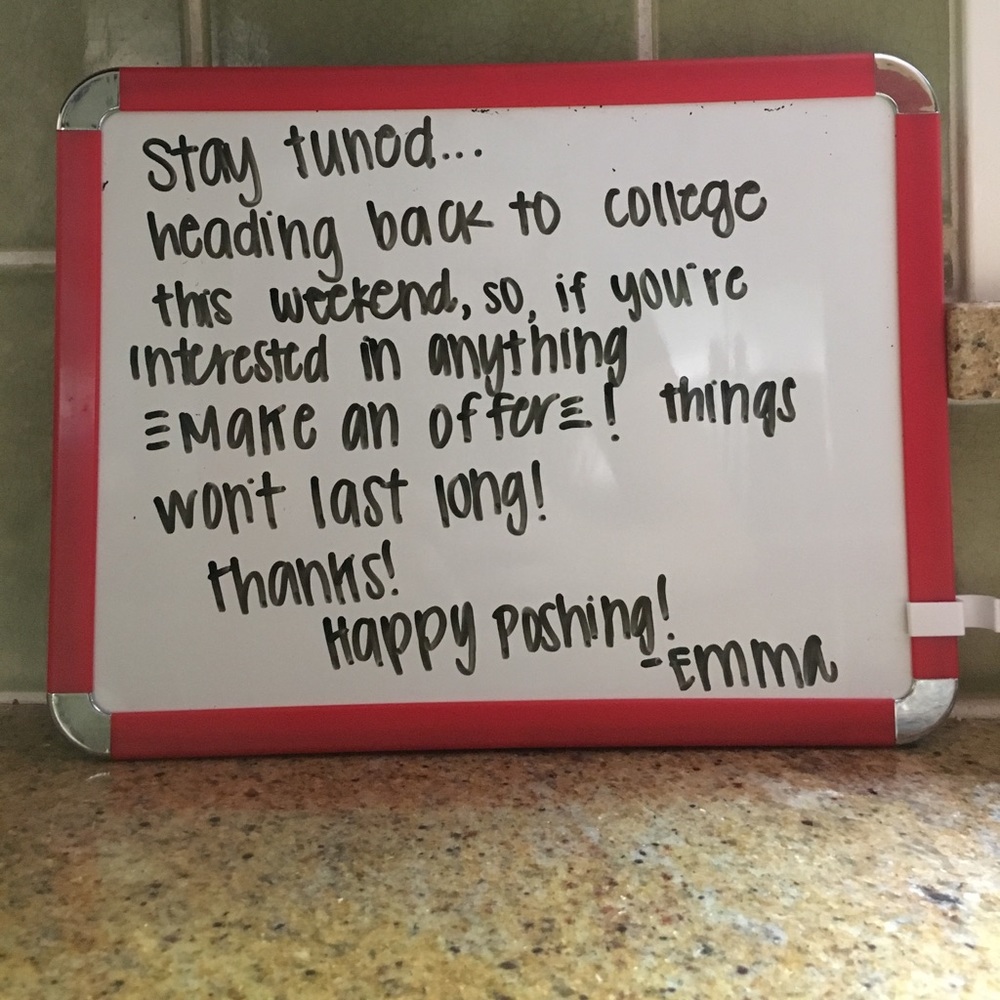 Stay tuned...
heading back to college
this weekend, so, if you're
interested in anything
≡Make an offer≡! things
won't last long!
thanks!
Happy Poshing!
-Emma